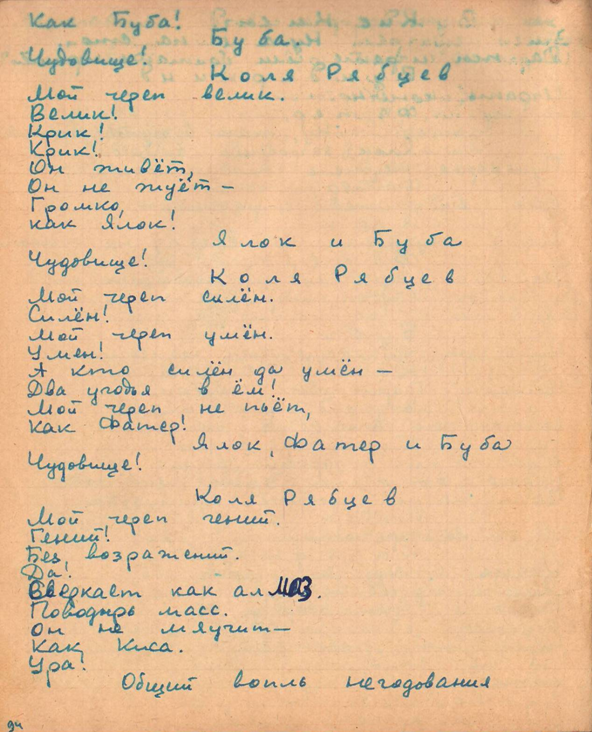 Как Буба!
Буба.
Чудовище!
Коля Рябцев
Мой череп велик.
Велик!
Крик!
Крик!
Он живёт,
Он не жуёт —
Громко,
как Ялок!
Ялок и Буба
Чудовище!
Коля Рябцев
Мой череп силён.
Силён!
Мой череп умён.
Умен!
А кто силён да умён —
Два угодья в ём!
Мой череп не пьёт,
как Фатер!
Ялок, Фатер и Буба
Чудовище!
Коля Рябцев
Мой череп гений.
Гений!
Без возражений.
Да!
Сверкает как алмаз.
Поводырь масс.
Он не мяучит —
Как Киса.
Ура!
Общий вопль негодования
94